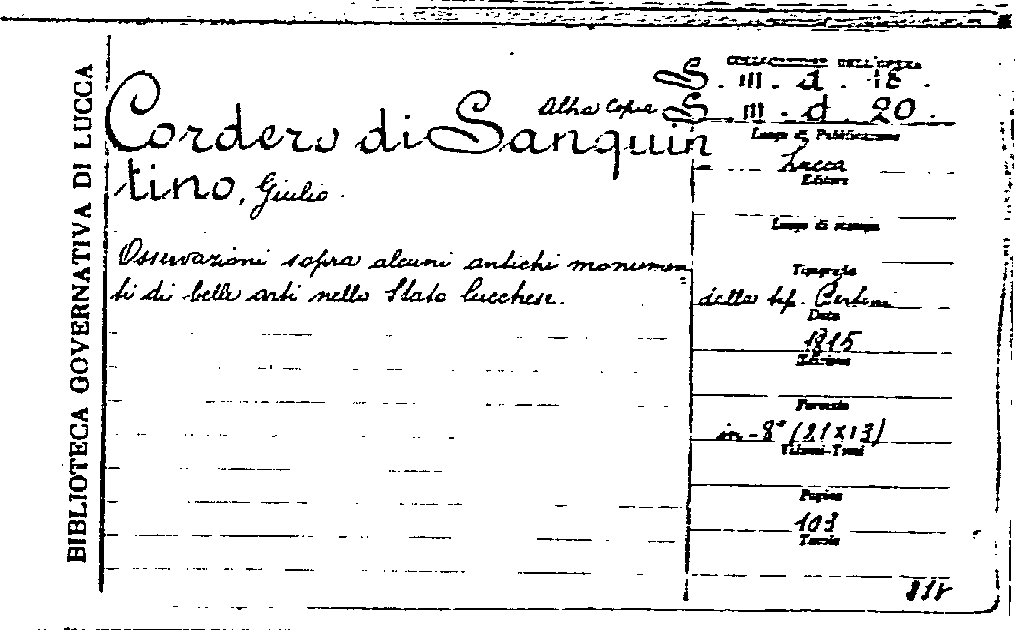 BIBLIOTECA GOVERNATIVA DI LUCCA
COLLOCAZIONE DELL'OPERA
S. III. d. 18.
Altra Copia S. III. d. 20.
Cordero di Sanquin
tino, Giulio.
Osservazioni sopra alcuni antichi monumen
ti di belle arti nello Stato lucchese.
Luogo di Pubblicazione
Lucca
Editore
Luogo di stampa
Tipografia
della tip. Bertini
Data
1815
Edizione
Formato
in-8° (21x13)
Volumi-Tomi
Pagine
103
Tavole